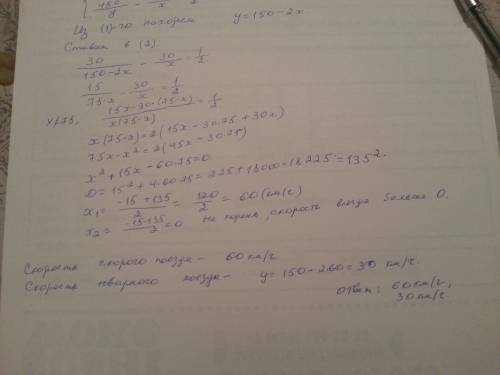 Из (1)-го находим y=150-2x
Ставим в (2).
30/(150-2x) - 30/x = 1/2
15/(75-x) - 30/x = 1/2
x≠75, (15x-30·(75-x))/(x(75-x)) = 1/2
x(75-x)=2(15x-30·75+30x)
75x-x²=2(45x-30·75)
x²+15x-60·75=0
D=15²+4·60·75=225+18000=18225=135².
x₁=(-15+135)/2=120/2=60(км/ч)
x₂=(-15-135)/2=0 Не корень, скорость всегда больше 0.
Скорость скорого поезда- 60км/ч
Скорость товарного поезда- y=150-2·60=30 км/ч.
Ответ: 60км/ч,
30км/ч.